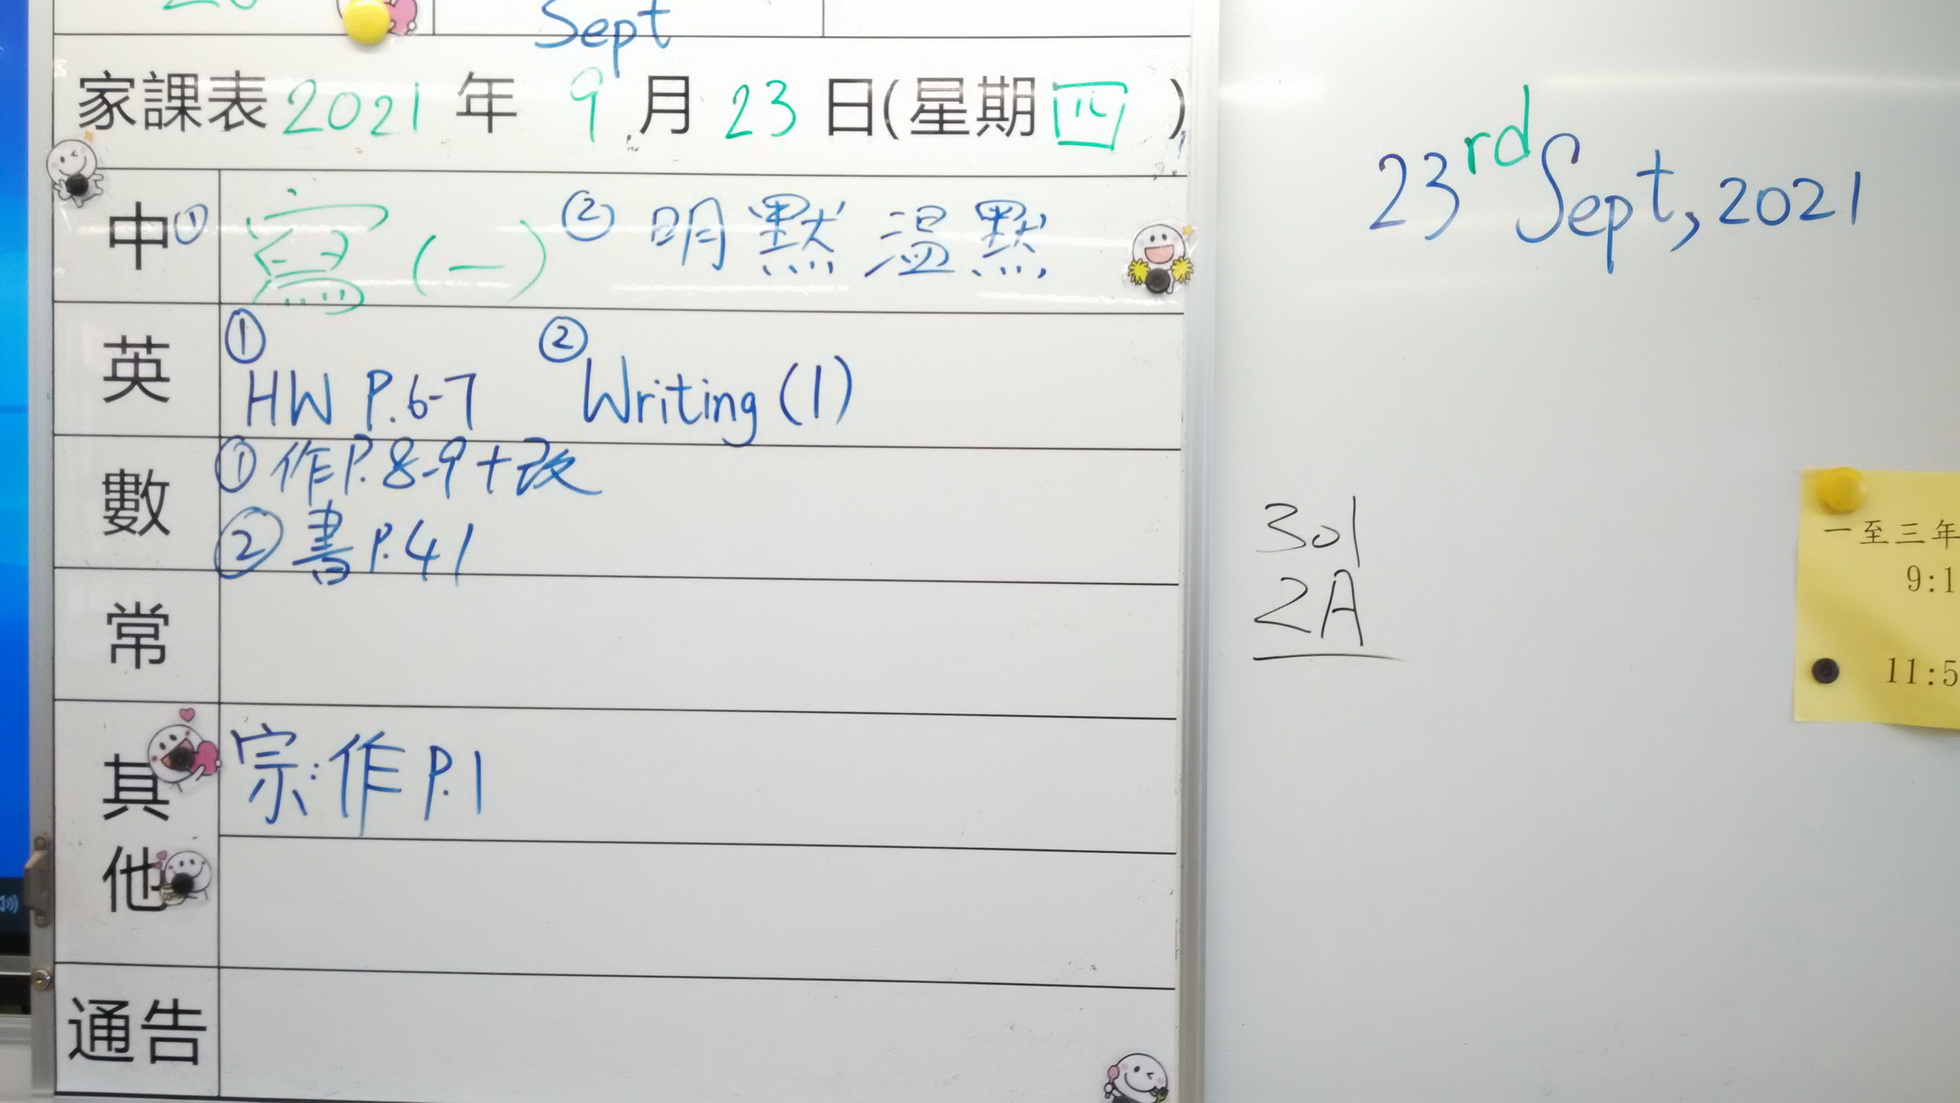 Sept
家課表 2021 年 9 月 23 日(星期四)
中 ① 寫(一) ② 明默 温默
英 ① HW P.6-7 ② Writing (1)
數 ① 作P.8-9+改
② 書P.41
常
其他 宗:作P.1
通告
23rd Sept, 2021
301
2A
一至三年
9:1
11:5